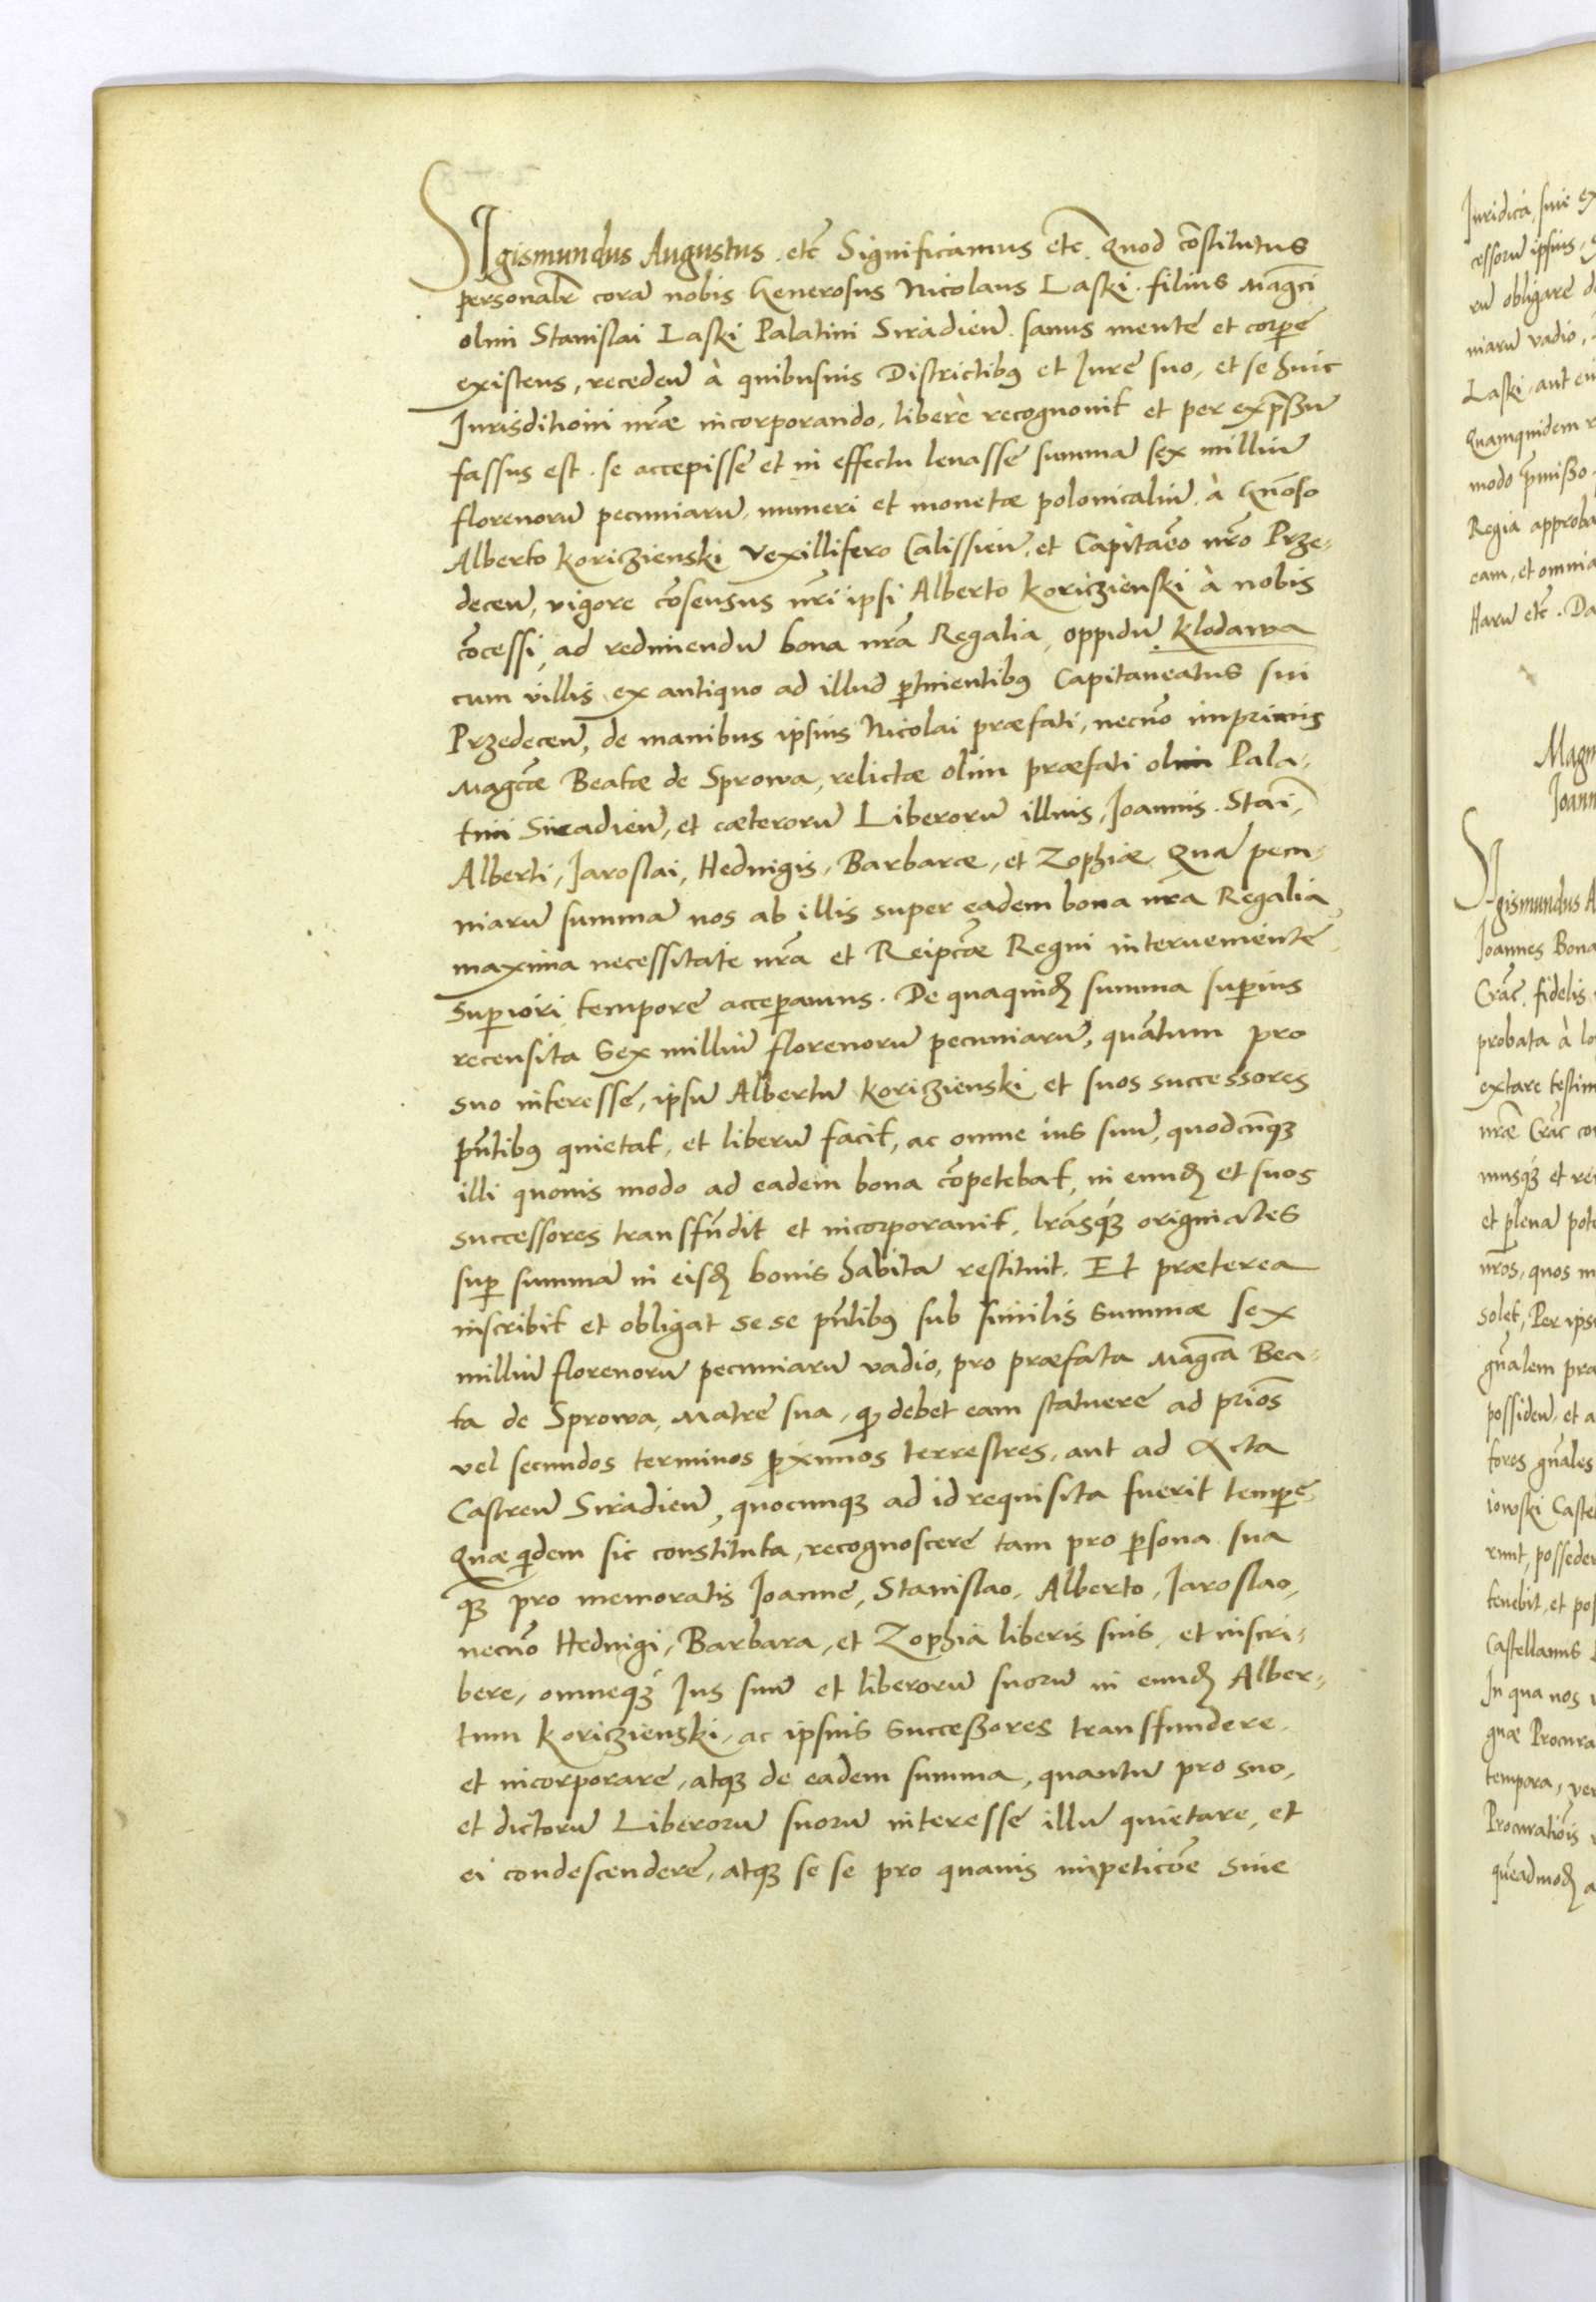 SIgismundus Augustus. etc̃ Significamus etc̃. Quod cõstitutus
personalr̃ corã nobis Generosus Nicolaus Laski. filius Magc̃i
olim Stanislai Laski Palatini Siradieñ. sanus mente et corp̃e
existens, recedeñ à quibusuis Districtibꝰ et Iure suo, et se huic
Iurisditioni nr̃æ incorporando, liberè recognouit et per exp̃ssũ
fassus est. se accepisse et in effectu leuasse summã sex milliũ
florenorũ pecuniarũ, numeri et monetæ polonicaliũ, à Gñoso
Alberto Koriczienski Vexillifero Calissieñ, et Capitãeo nr̃o Prze-
deceñ, vigore cõsensus nr̃i ipsi Alberto Koriczienski à nobis
cõcessi, ad redimendũ bona nr̃a Regalia, oppidũ Klodawa
cum villis ex antiquo ad illud ꝑtinentibꝰ Capitaneatus sui
Przedeceñ, de manibus ipsius Nicolai præfati, necnõ imprimis
Magc̃æ Beatæ de Sprowa, relictæ olim præfati olim Pala-
tini Siradieñ, et cæterorũ Liberorũ illius, Ioannis. Stañi,
Alberti, Iaroslai, Heduigis, Barbaræ, et Zophiæ. Quã pecu-
niarũ summã nos ab illis super eadem bona nr̃a Regalia
maxima necessitate nr̃a et Reipc̃æ Regni interueniente
suꝑiori tempore acceꝑamus. De quaquidẽ summa suꝑius
recensita Sex milliũ florenorũ pecuniarũ, quãtum pro
suo interesse, ipsũ Albertũ Koriczienski et suos successores
pñtibꝰ quietat, et liberũ facit, ac omne ius suũ, quodcũqꝫ
illi quouis modo ad eadem bona cõpetebat, in eundẽ et suos
successores transfũdit et incorporauit, lr̃asqꝫ originales
suꝑ summã in eisdẽ bonis habitã restituit. Et præterea
inscribit et obligat sese pñtibꝰ sub similis summæ sex
milliũ florenorũ pecuniarũ vadio, pro præfata Magc̃a Bea-
ta de Sprowa, Matre sua, qꝫ debet eam statuere ad prĩos
vel secundos terminos ꝓximos terrestres, aut ad Acta
Castreñ Siradieñ, quocunqꝫ ad id requisita fuerit tempe.
Quæ qͥdem sic constituta, recognoscere tam pro ꝑsona sua
qꝫ pro memoratis Ioanne, Stanislao, Alberto, Iaroslao,
necnõ Heduigi, Barbara, et Zophia liberis suis, et inscri-
bere, omneqꝫ Ius suũ et liberorũ suorũ in eundẽ Alber-
tum Koriczienski, ac ipsius Successores transfundere
et incorporare, atqꝫ de eadem summa, quantũ pro suo,
et dictorũ Liberorũ suorũ interesse illũ quietare, et
ei condescendere, atqꝫ se se pro quauis impeticõe siue

Iuridica, siue ex
cessorũ ipsius,
rũ obligare d
niarũ vadio,
Laski, aut eu
Quamquidem r
modo p̃misso
Regia approba
eam, et omnia
Harũ etc̃. Da
Magn
Ioann
SIgismundus A
Ioannes Bona
Crac̃. fidelis
probata à lo
extare testim
nr̃æ Crac̃ co
musqꝫ et re
et plena pote
nr̃os, quos in
solet, Per ips
gñalem pra
possideñ, et a
tores gñales
iowski Caste
runt, posseder
tenebit, et pos
Castellanus
In qua nos
gnæ Procura
tempora, ver
Procuratiõis
queadmodẽ a